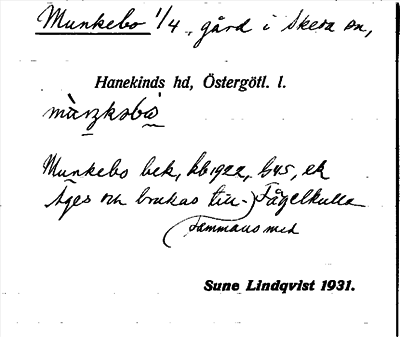 Munkebo 1/4, gård i Skeda sn,
Hanekinds hd, Östergötl. l.
Munkebo bek, hb 1922,
Äges och brukas till- Fågelkulla
sammans med
Sune Lindqvist 1931.